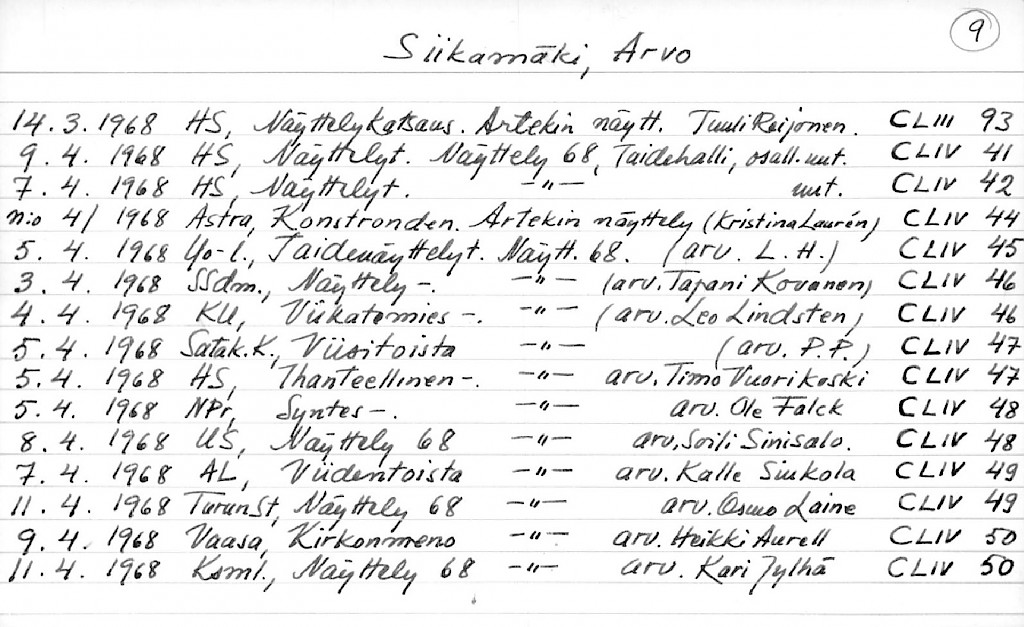 9
Siikamäki, Arvo
14.3.1968 HS, Näyttelykatsaus. Artekin näytt. Tuuli Reijonen. CLIII 93
9.4. 1968 HS, Näyttelyt. Näyttely 68, Taidehalli, osall. uut. CLIV 41
7.4. 1968 HS, Näyttelyt. -"- uut. CLIV 42
n:o 4/ 1968 Astra, Konstronden. Artekin näyttely (Kristina Laurén) CLIV 44
5.4. 1968 Yo-l., Taidenäyttelyt. Näytt. 68. (arv. L.H.) CLIV 45
3.4. 1968 SSdm., Näyttely -. -"- (arv. Tapani Kovanen) CLIV 46
4.4. 1968 KU, Viikatemies -. -"- (arv. Leo Lindsten) CLIV 46
5.4. 1968 Satak.K., Viisitoista -"- (arv. P.P.) CLIV 47
5.4. 1968 HS, Ihanteellinen -. -"- arv. Timo Vuorikoski CLIV 47
5.4. 1968 NPr, Syntes -. -"- arv. Ole Falck CLIV 48
8.4. 1968 US, Näyttely 68 -"- arv. Soili Sinisalo. CLIV 48
7.4. 1968 AL, Viidentoista -"- arv. Kalle Siukola CLIV 49
11.4. 1968 TurunSt, Näyttely 68 -"- arv. Osmo Laine CLIV 49
9.4. 1968 Vaasa, Kirkonmeno -"- arv. Heikki Aurell CLIV 50
11.4. 1968 Ksml., Näyttely 68 -"- arv. Kari Jylhä CLIV 50